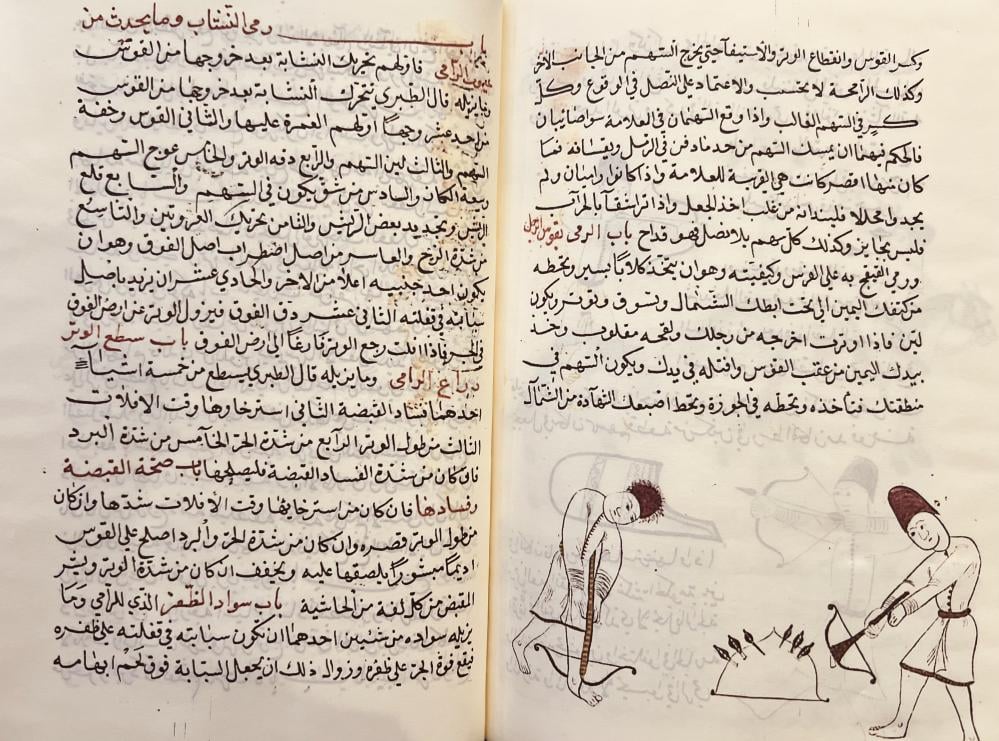 وكسر القوس وانقطاع الوتر والاستيفا حتى يخرج السهم من الجانب الاخر
وكذلك الرامحة لا يحتسب والاعتماد على النصل في الوقوع وكل
كسر في السهم الغالب واذا وقع السهمان في العلامة سوا صائبان
فالحكم فيهما ان يمسك السهم من حد ما دفن في الرمل ويقاس
كان منهما اقصر كانت هي القريبة للعلامة واذ كانوا راميان ولم
يجدوا محللا من غلب اخذ الجعل واذا تراشقا بالحراب
فليس بجايز وكذلك كل سهم بلا نصل فهو قداح باب الرمي بقوس الرجل
ورمي به على الفرس وكيفيته وهو ان يتخذ كلابا بسير وتحطه
من كتفك اليمين الى تحت ابطك الشمال وتسوق وتوتر ويكون
لين فاذا اوترت اخرجه من رجلك ولقحه مقلوب وخذ
بيدك اليمين من عقب القوس وافتله في يدك ويكون السهم في
منطقتك فتاخذه وتحطه في الجوزة وتحط اصبعك الشهادة من الشمال
باب رمى النشاب وما يحدث من
عيوب الرامي فاولهم تحريك النشابة بعد خروجها من القوس
وما يزيله قال الطبري تتحرك النشابة بعد خروجها من القوس
من احد عشر وجها اولهم الغمزة عليها والثاني القوس وخفة
السهم والثالث لين السهم والرابع دقه الوتر والخامس عوج السهم
وسعة الكاز والسادس من شق يكون في السهم والسابع قلع
الريش وتجديد بعض الريش والثامن تحريك العروتين والتاسع
من شدة الزخ والعاشر من اصل اضطراب اصل الفوق وهو ان
يكون احد جنبيه اعلا من الاخر والحادي عشر ان يزيد باصل
سبابته في تفلته الثاني عشر دق الفوق فيزول الوتر عن ارض الفوق
في الجر فاذا افلت رجع الوتر فارغا الى ارض الفوق باب سطع الوتر
ذراع الرامي وما يزيله قال الطبري يسطع من خمسة اشيا
احدهما فساد القبضة الثاني استرخاوها وقت الافلات
الثالث من طول الوتر الرابع من شدة الحر الخامس من شدة البرد
فان كان من شدة الفساد القبضة فليصلحها باب صحة القبضة
وفسادها فان كان من استرخايها وقت الافلات شدها وان كان
من طول الوتر قصره وان كان من شدة الحر والبرد اصلح على القوس
اديما مبشورا يلصقها عليه ويخفف ان كان من شدة الوتر وبشر
المقبض من كل لفة من الحاشية باب سواد الظفر الذي للرامي وما
يزيله سواده من شئين احدهما ان تكون سبابته في تفلته على ظفره
فيقع قوة الجر على ظفره وزوال ذلك ان يجعل السبابة فوق لحم ابهامه